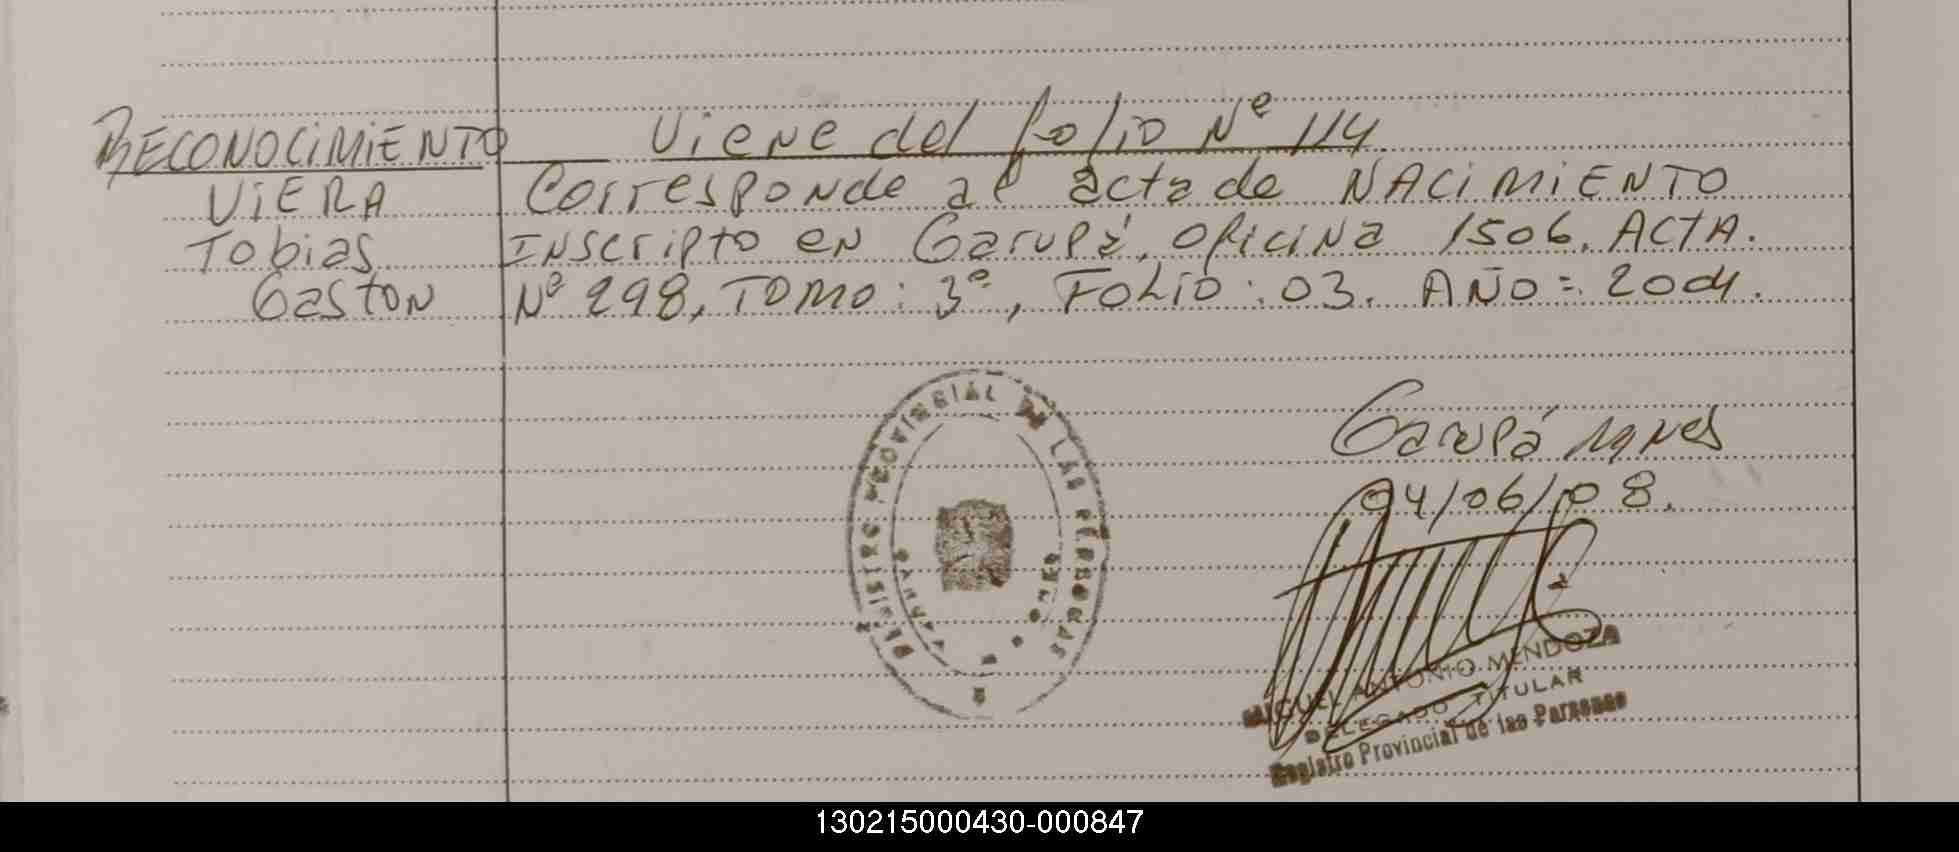 RECONOCIMIENTO
VIERA
Tobias
Gaston
Viene del folio Nº 114.
Corresponde al acta de NACIMIENTO
INScripto en Garupá, oficina 1506. ACTA.
Nº 298, TOMO: 3º, FOLIO: 03. AÑO=2004.
REGISTRO PROVINCIAL DE LAS PERSONAS
Garupá
04/06/08.
MIGUEL ANTONIO MENDOZA
DELEGADO TITULAR
Registro Provincial de las Personas
130215000430-000847